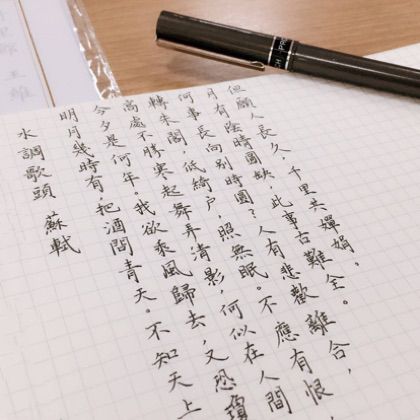 水調歌頭 蘇軾
明月幾時有,把酒問青天。不知天上
今夕是何年。我欲乘風歸去,又恐瓊
高處不勝寒起舞弄清影,何似在人間
轉朱閣,低綺户,照無眠。不應有恨,
何事長向別時圓?人有悲歡離合,
月有陰晴圓缺,此事古難全。
但願人長久,千里共嬋娟。